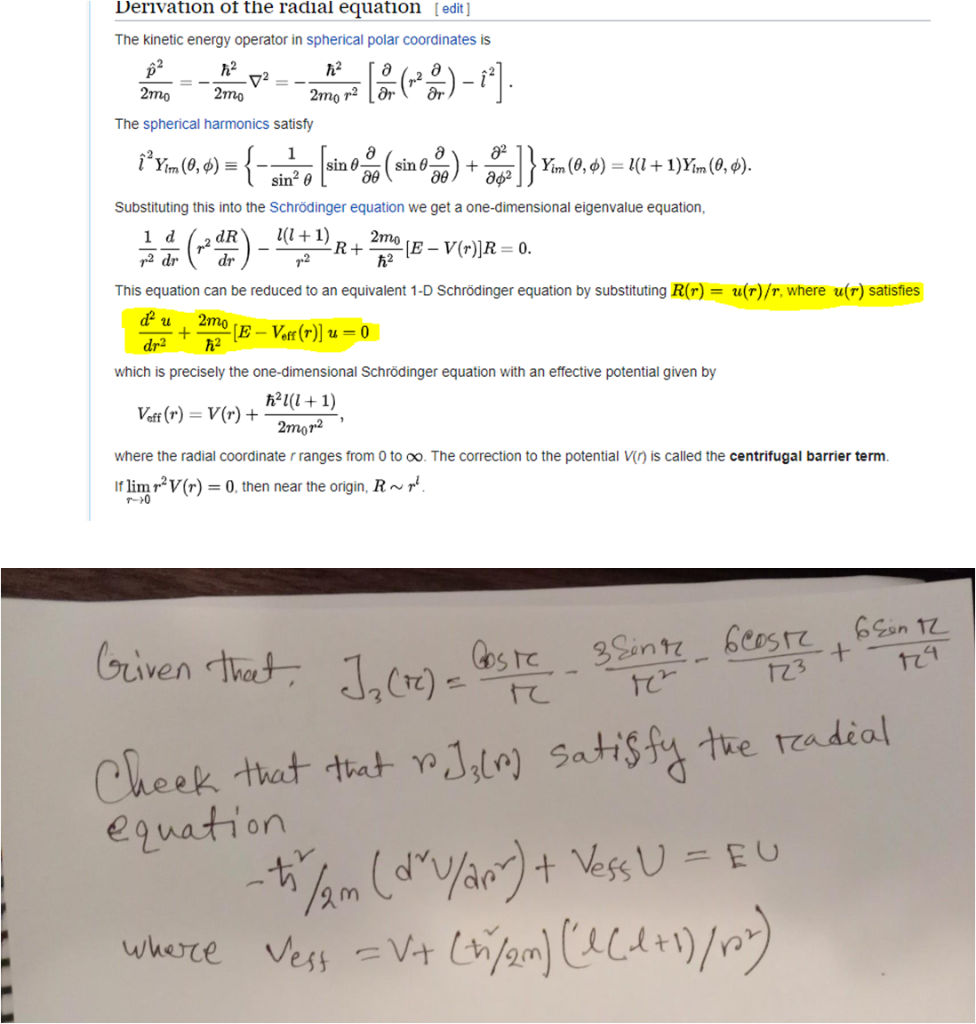 Derivation of the radial equation [ edit ]
The kinetic energy operator in spherical polar coordinates is
p̂²/2m₀ = −ħ²/2m₀ ∇² = −ħ²/(2m₀ r²) [∂/∂r (r² ∂/∂r) − l̂²].
The spherical harmonics satisfy
l̂² Yₗₘ(θ, ϕ) ≡ {−1/sin² θ [sin θ ∂/∂θ (sin θ ∂/∂θ) + ∂²/∂ϕ²]} Yₗₘ(θ, ϕ) = l(l + 1)Yₗₘ(θ, ϕ).
Substituting this into the Schrödinger equation we get a one-dimensional eigenvalue equation,
1/r² d/dr (r² dR/dr) − l(l + 1)/r² R + 2m₀/ħ² [E − V(r)]R = 0.
This equation can be reduced to an equivalent 1-D Schrödinger equation by substituting R(r) = u(r)/r, where u(r) satisfies
d² u/dr² + 2m₀/ħ² [E − V_eff(r)] u = 0
which is precisely the one-dimensional Schrödinger equation with an effective potential given by
V_eff(r) = V(r) + ħ²l(l + 1)/2m₀r²,
where the radial coordinate r ranges from 0 to ∞. The correction to the potential V(r) is called the centrifugal barrier term.
If lim r→0 r²V(r) = 0, then near the origin, R ∼ rˡ.
Given that, J₃(r) = Cos r/r − 3 Sin r/r² − 6 cos r/r³ + 6 Sin r/r⁴
Check that that r J₃(r) satisfy the radial
equation
−ħ²/2m (d²U/dr²) + Veff U = EU
where Veff = V + (ħ²/2m) (l(l+1)/r²)